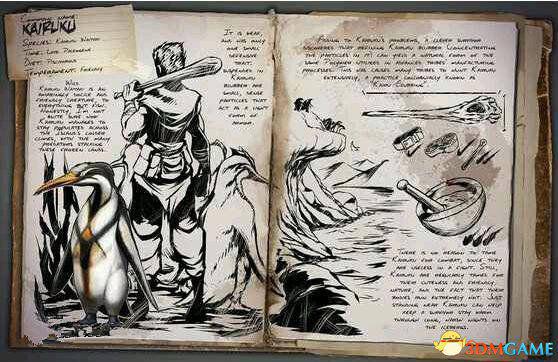 COMMON NAME
KAIRUKU
SPECIES: KAIRUKU WAITAKI
TIME: LATE OLIGOCENE
DIET: PISCIVOROUS
TEMPERAMENT: FRIENDLY
WILD
KAIRUKU WAITAKI IS AN
AWKWARDLY DOCILE AND
FRIENDLY CREATURE, TO
EVERYTHING BUT FISH.
HONESTLY, I'M NOT
QUITE SURE HOW
KAIRUKU MANAGES TO
STAY POPULATED ACROSS
THE ISLAND'S COLDER
CLIMES, WITH THE MANY
PREDATORS STALKING
THESE FROZEN LANDS.
IT IS WEAK,
AND HAS ONLY
ONE SMALL
DEFENSIVE
TRAIT:
SUSPENDED IN
KAIRUKU
BLUBBER ARE
SMALL, DENSE
PARTICLES THAT
ACT AS A LIGHT
FORM OF
ARMOR.
ADDING TO KAIRUKU'S PROBLEMS, A CLEVER SURVIVOR
DISCOVERED THAT REFINING KAIRUKU BLUBBER (CONCENTRATING
THE PARTICLES IN IT) CAN YIELD A NATURAL FORM OF THE
SAME POLYMER UTILIZED IN ADVANCED TRIBES MANUFACTURING
PROCESSES. THIS HAS CAUSED MANY TRIBES TO HUNT KAIRUKU
EXTENSIVELY, A PRACTICE COLLOQUIALLY KNOWN AS
"KAIRU CLUBBING"
THERE IS NO REASON TO TAME
KAIRUKU FOR COMBAT, SINCE THEY
ARE USELESS IN A FIGHT. STILL,
KAIRUKU ARE REGULARLY TAMED FOR
THEIR CUTENESS AND FRIENDLY
NATURE, AND THE FACT THAT THEIR
BODIES RUN EXTREMELY HOT. JUST
STANDING NEAR KAIRUKU CAN HELP
KEEP A SURVIVOR STAY WARM
THROUGH LONG, HARSH NIGHTS ON
THE ICEBERGS.
3DMGAME